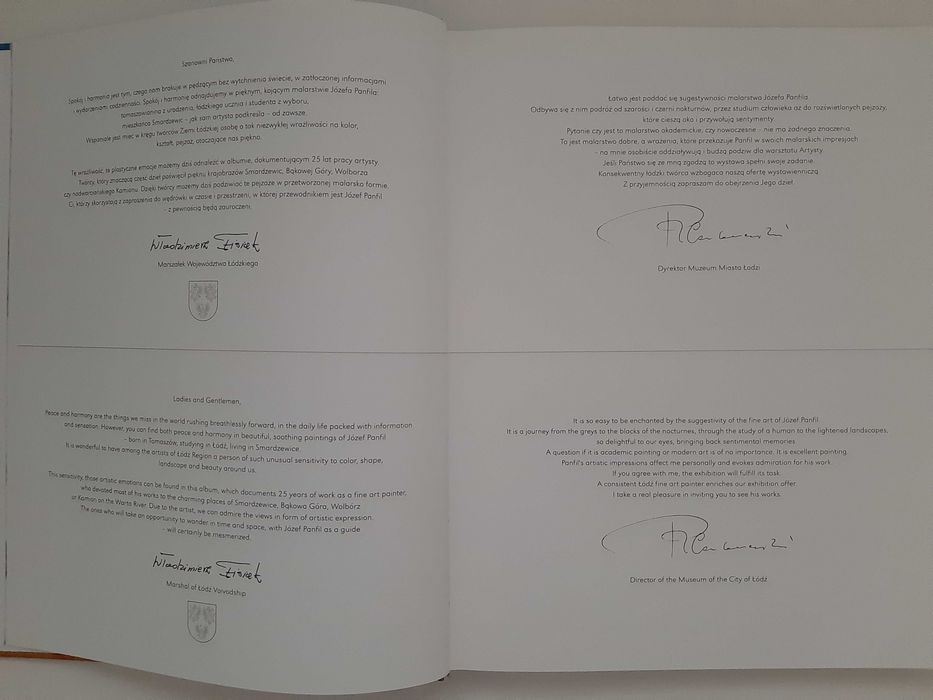 Szanowni Państwo,
Spokój i harmonia jest tym, czego nam brakuje w pędzącym bez wytchnienia świecie, w zatłoczonej informacjami
i wydarzeniami codzienności. Spokój i harmonię odnajdujemy w pięknym, kojącym malarstwie Józefa Panfila:
tomaszowianina z urodzenia, łódzkiego ucznia i studenta z wyboru,
mieszkańca Smardzewic - jak sam artysta podkreśla - od zawsze.
Wspaniale jest mieć w kręgu twórców Ziemi Łódzkiej osobę o tak niezwykłej wrażliwości na kolor,
kształt, pejzaż, otaczające nas piękno.
Tę wrażliwość, te plastyczne emocje możemy dziś odnaleźć w albumie, dokumentującym 25 lat pracy artysty.
Twórcy, który znaczącą część dzieł poświęcił pięknu krajobrazów Smardzewic, Bąkowej Góry, Wolborza
czy nadwarciańskiego Kamionu. Dzięki twórcy możemy dziś podziwiać te pejzaże w przetworzonej malarsko formie.
Ci, którzy skorzystają z zaproszenia do wędrówki w czasie i przestrzeni, w której przewodnikiem jest Józef Panfil
- z pewnością będą zauroczeni.
Włodzimierz Fisiak
Marszałek Województwa Łódzkiego
Łatwo jest poddać się sugestywności malarstwa Józefa Panfila.
Odbywa się z nim podróż od szarości i czerni nokturnów, przez studium człowieka aż do rozświetlonych pejzaży,
które cieszą oko i przywołują sentymenty.
Pytanie czy jest to malarstwo akademickie, czy nowoczesne - nie ma żadnego znaczenia.
To jest malarstwo dobre, a wrażenia, które przekazuje Panfil w swoich malarskich impresjach
- na mnie osobiście oddziaływują i budzą podziw dla warsztatu Artysty.
Jeśli Państwo się ze mną zgodzą to wystawa spełni swoje zadanie.
Konsekwentny łódzki twórca wzbogaca naszą ofertę wystawienniczą.
Z przyjemnością zapraszam do obejrzenia Jego dzieł.
Dyrektor Muzeum Miasta Łodzi
Ladies and Gentlemen,
Peace and harmony are the things we miss in the world rushing breathlessly forward, in the daily life packed with information
and sensation. However, you can find both peace and harmony in beautiful, soothing paintings of Józef Panfil
- born in Tomaszów, studying in Łódź, living in Smardzewice.
It is wonderful to have among the artists of Łódź Region a person of such unusual sensitivity to color, shape,
landscape and beauty around us.
This sensitivity, those artistic emotions can be found in this album, which documents 25 years of work as a fine art painter,
who devoted most of his works to the charming places of Smardzewice, Bąkowa Góra, Wolbórz
or Kamion on the Warta River. Due to the artist, we can admire the views in form of artistic expression.
The ones who will take an opportunity to wander in time and space, with Józef Panfil as a guide
- will certainly be mesmerized.
Włodzimierz Fisiak
Marshal of Łódź Voivodship
It is so easy to be enchanted by the suggestivity of the fine art of Józef Panfil.
It is a journey from the greys to the blacks of the nocturnes, through the study of a human to the lightened landscapes,
so delightful to our eyes, bringing back sentimental memories.
A question if it is academic painting or modern art is of no importance. It is excellent painting.
Panfil's artistic impressions affect me personally and evokes admiration for his work.
If you agree with me, the exhibition will fulfill its task.
A consistent Łódź fine art painter enriches our exhibition offer.
I take a real pleasure in inviting you to see his works.
Director of the Museum of the City of Łódź